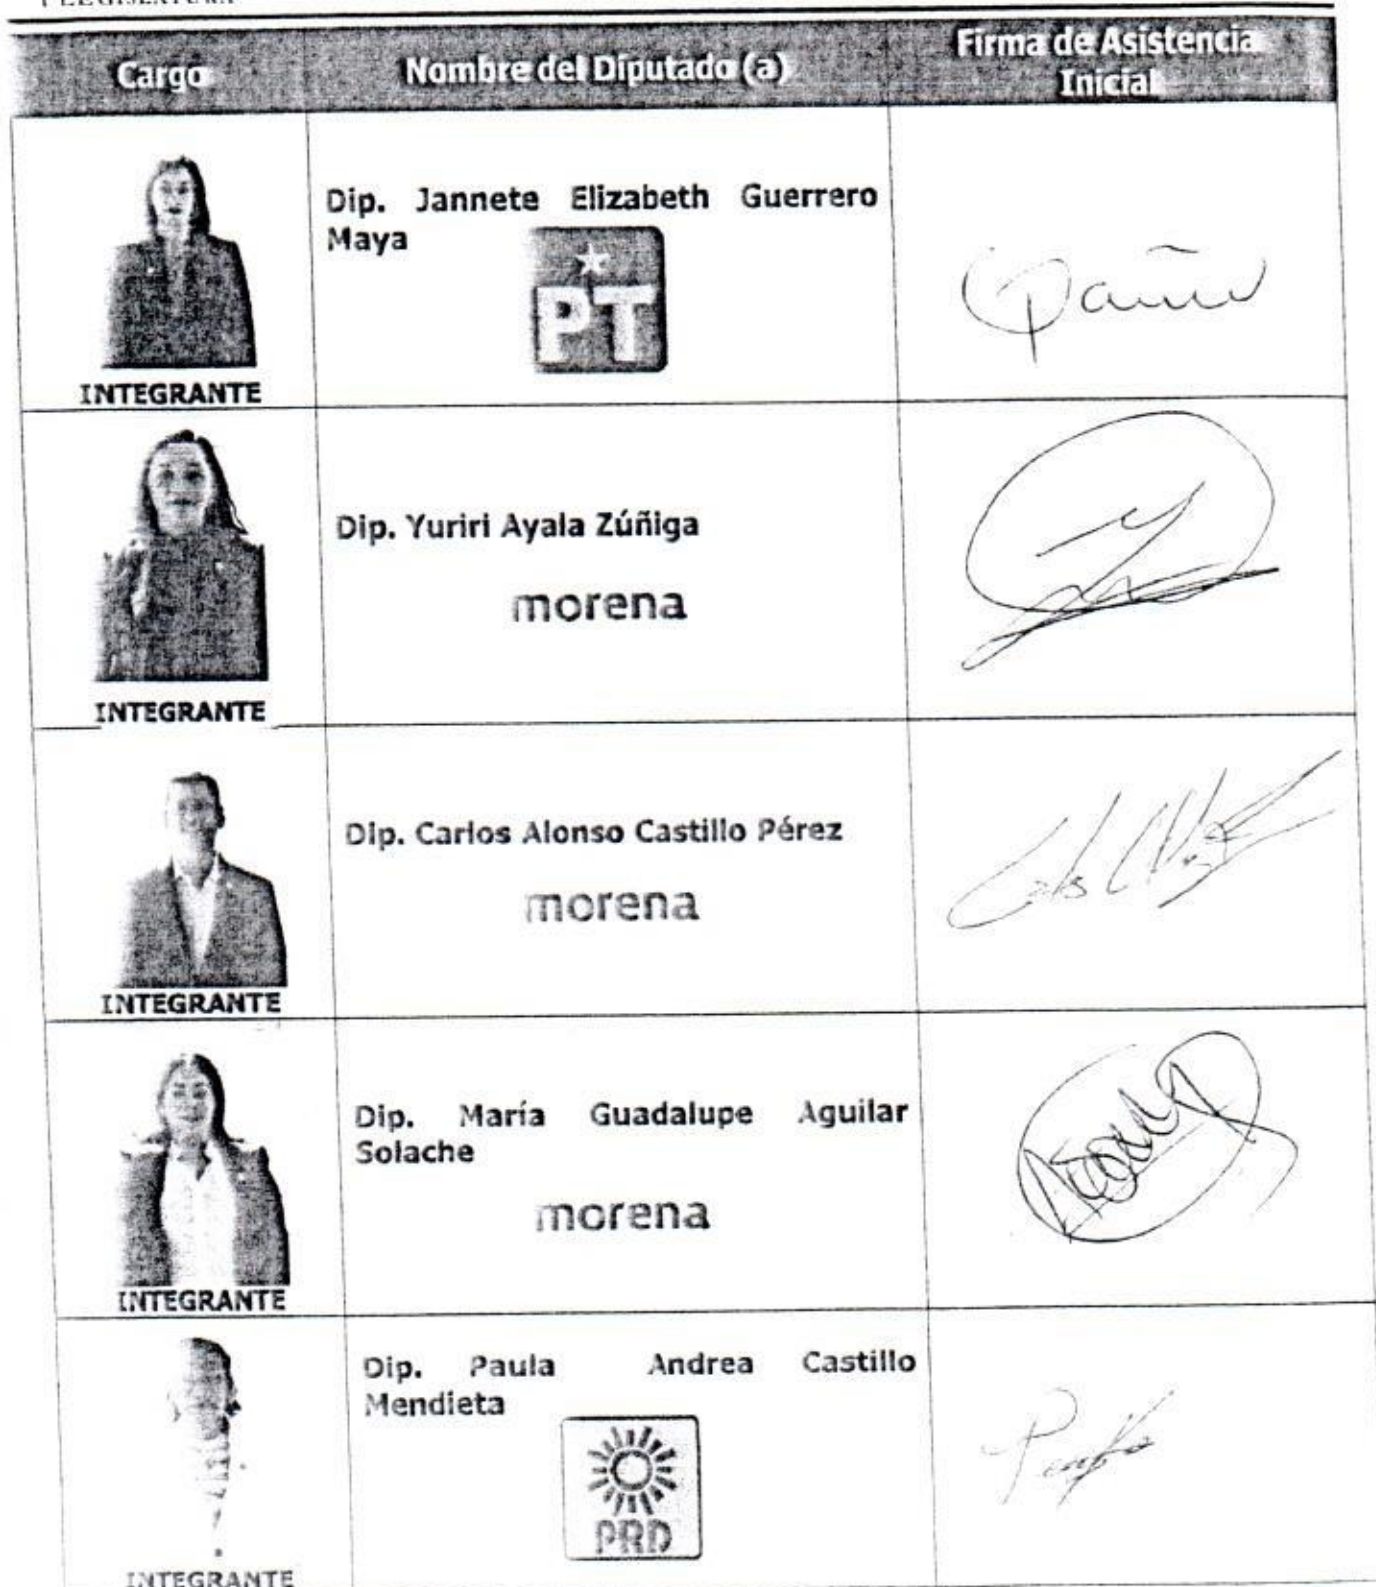 I LEGISLATURA
Cargo
Nombre del Diputado (a)
Firma de Asistencia
Inicial
Dip. Jannete Elizabeth Guerrero
Maya
PT
INTEGRANTE
Dip. Yuriri Ayala Zúñiga
morena
INTEGRANTE
Dip. Carlos Alonso Castillo Pérez
morena
INTEGRANTE
Dip. María Guadalupe Aguilar
Solache
morena
INTEGRANTE
Dip. Paula Andrea Castillo
Mendieta
PRD
INTEGRANTE